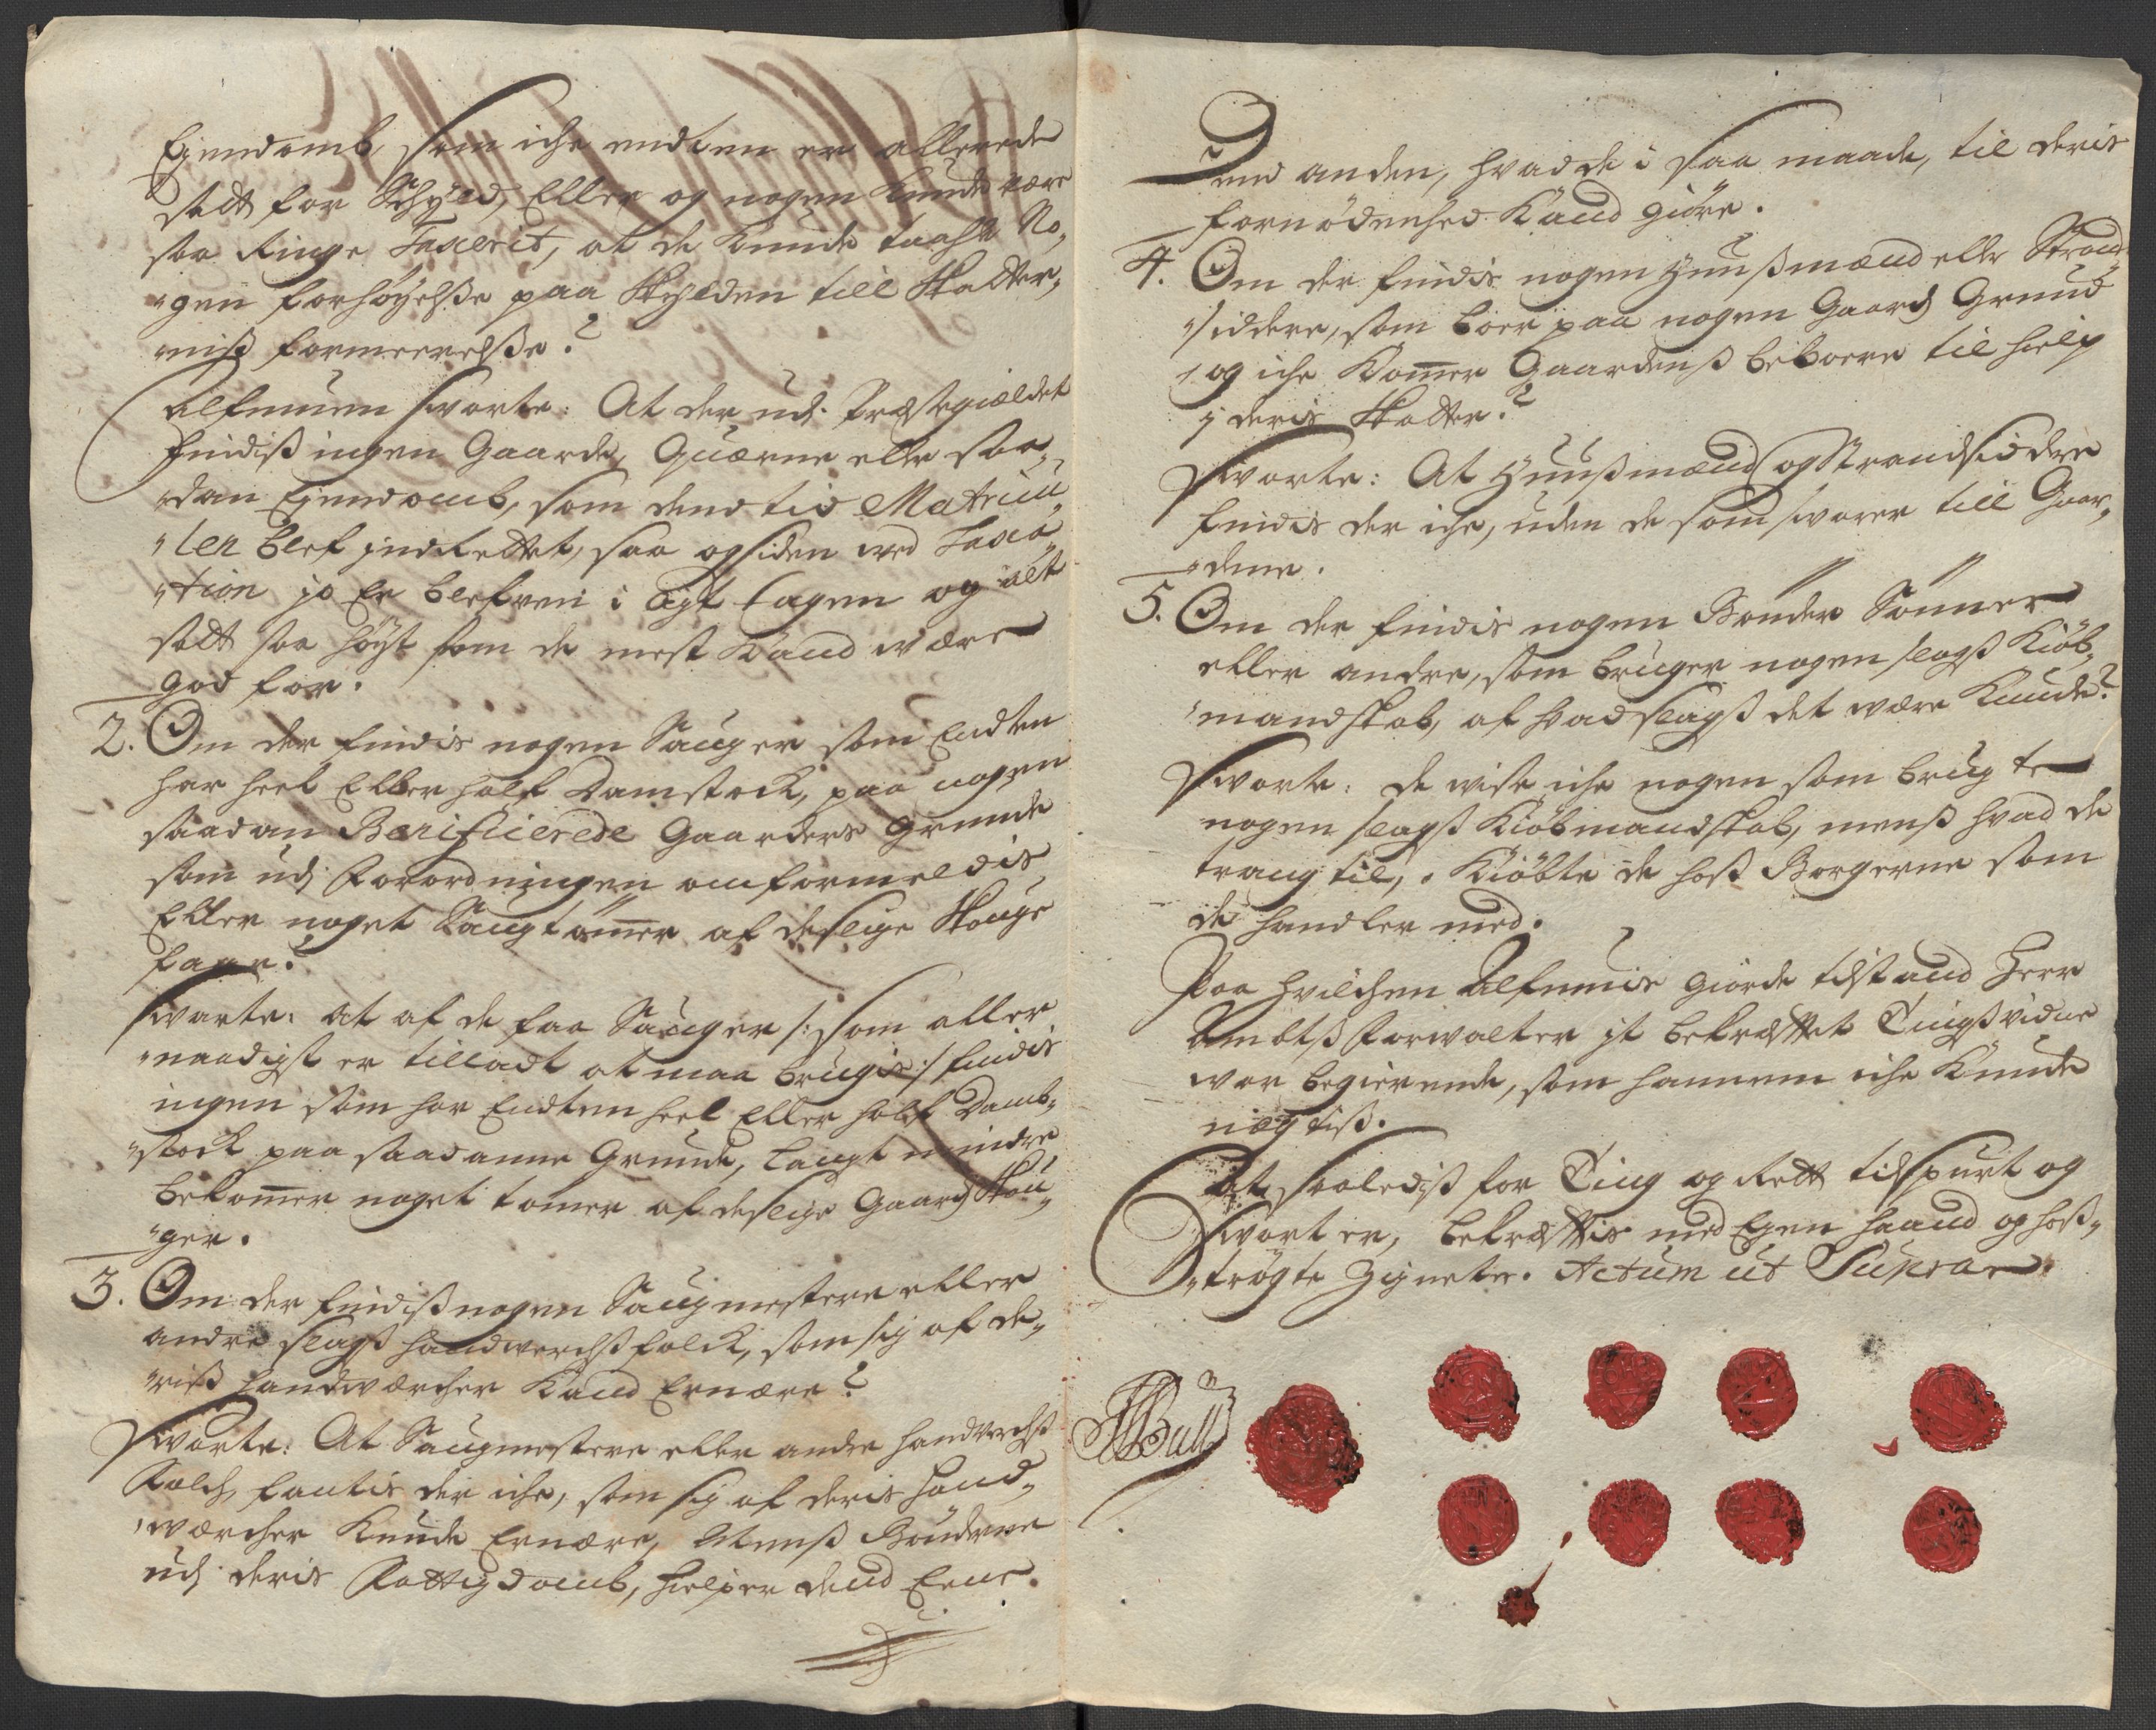 Ejendomb, som iche endten er allerede
satt for Schyld, Eller og nogen kunde være
saa ringe Taxerit, at de kunde taahle No,,
,,gen forhøyelsse paa skylden till skatter,,
,,niss formeerelsse?
Allmuen svarte: At der udj Præstegieldet
findiss ingen Gaarde, Quærne eller saa,,
,,dan Ejendomb, som dend tid Matricu,,
,,len blef indrettet, saa og siden ved Taxa,,
,,tion jo Er blefven i agt tagen og alt
satt saa høyt som de mest kand være
god for.
2. Om der findis nogen Sauger som Endten
har heel Eller half Damstock, paa nogen
saadan Benificierede Gaarders grunde
som udj forordningen omformeldis,
Eller noget Saugtømer af deslige skouge
faar?
Svarte: at af de faa Sauger /: som aller
,,naadigst er tilladt at maa brugis :/ findis
ingen som har Endten heel Eller half Damb,,
,,stock paa saadanne Grunde, langt mindre
bekomer noget tømer af deslige Gaards skou,,
,,ger.
3. Om der findiss nogen Saugmestere eller
andre slags handverchssfolck, som sig af de,,
,,riss handværcher kand Ernære?
Svarte: At Saugmestere eller andre handverchss
Folch, fantis der iche, som sig af deris hand,,
,,værcher kunde Ernære, Menss Bønderne
udj deris Fattigdomb, hielper dend Eene
Dend anden, hvad de i saa maade, til deris
fornødenhed kand giøre.
4. Om der findis nogen Huussmænd eller Strand,,
,,siddere, som boer paa nogen Gaards Grund
og iche komer Gaardenss beboere til hielp
i deris skatter?
Svarte: At Huussmænd og Strandsiddere
findis der iche, uden de som svarer till Gaar,,
,,dene.
5. Om der findis nogen Bønder Sønner
eller andre, som bruger nogen slags Kiøb,,
,,mandskab, af hvad slags det være kunde?
Svarte: de viste iche nogen som brugte
nogen slags Kiøbmandskab, menss hvad de
trang til, Kiøbte de hoss Borgerne som
de handler med.
Paa hvilchen Allmuis giorde tilstand Herr
Ambtss Forvalter it bekræfftet Tingsvidne
var begierende, som hannem iche kunde
nægtiss.
At saalediss for Ting og Rett tilspurt og
Svart er, bekræfftis med Egen haand og hoss,,
,,trøgte Zigneter. Actum ut Supra.
Bull